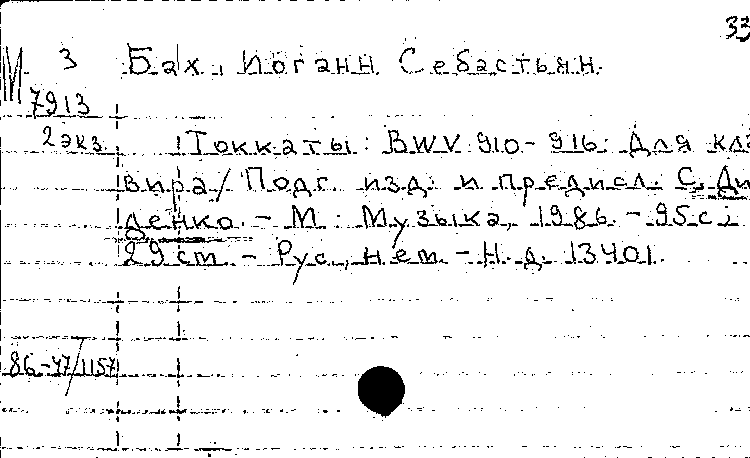 33
М 3 Бах, Иоганн Себастьян.
7913
2 экз. Токкаты: BWV 910-916: Для кла
вира / Подг. изд. и предисл. С. Ди
денко. - М.: Музыка, 1986. - 95 с.;
29 см. - Рус., нем. - Н.д. 13401.
86-47/1157